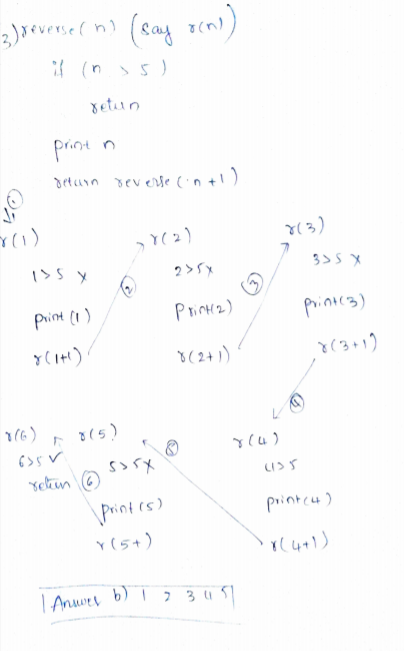 3) reverse(n) (say r(n))
if (n > 5)
return
print n
return reverse(n+1)
①
r(1)
1>5 x
print(1)
r(1+1)
②
r(2)
2>5x
Print(2)
r(2+1)
③
r(3)
3>5 x
print(3)
r(3+1)
④
r(4)
4>5
print(4)
r(4+1)
⑤
r(5)
5>5x
print(5)
r(5+)
⑥
r(6)
6>5 ✓
return
Answer b) 1 2 3 4 5